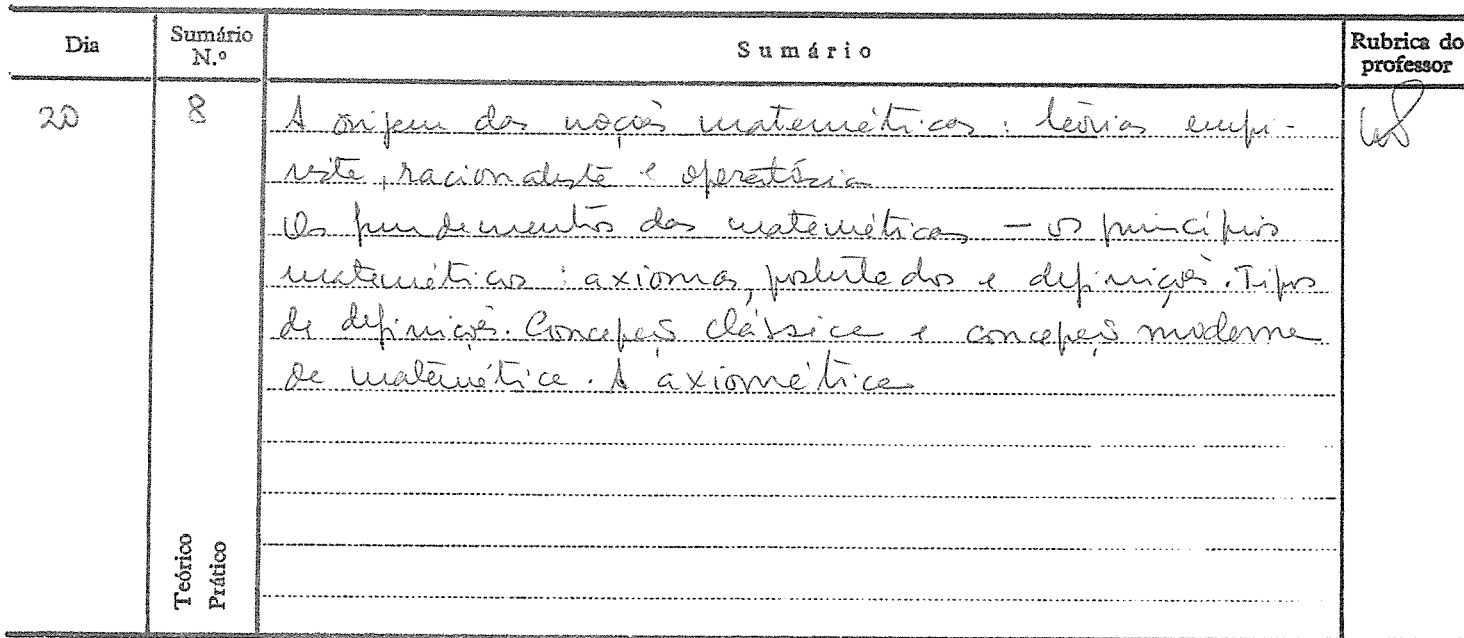 Dia Sumário N.º Sumário Rubrica do professor
20 8 A origem das noções matemáticas : teorias empi-
rista, racionalista e operatória
Os fundamentos das matemáticas — os princípios
matemáticos : axiomas, postulados e definições. Tipos
de definições. Concepção clássica e concepção moderna
de matemática. A axiomática
Teórico
Prático